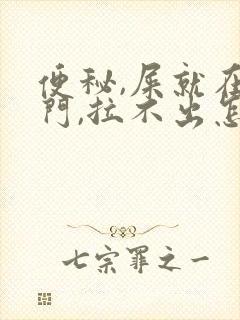 便秘,屎就在
門,拉不出怎
七宗罪之一